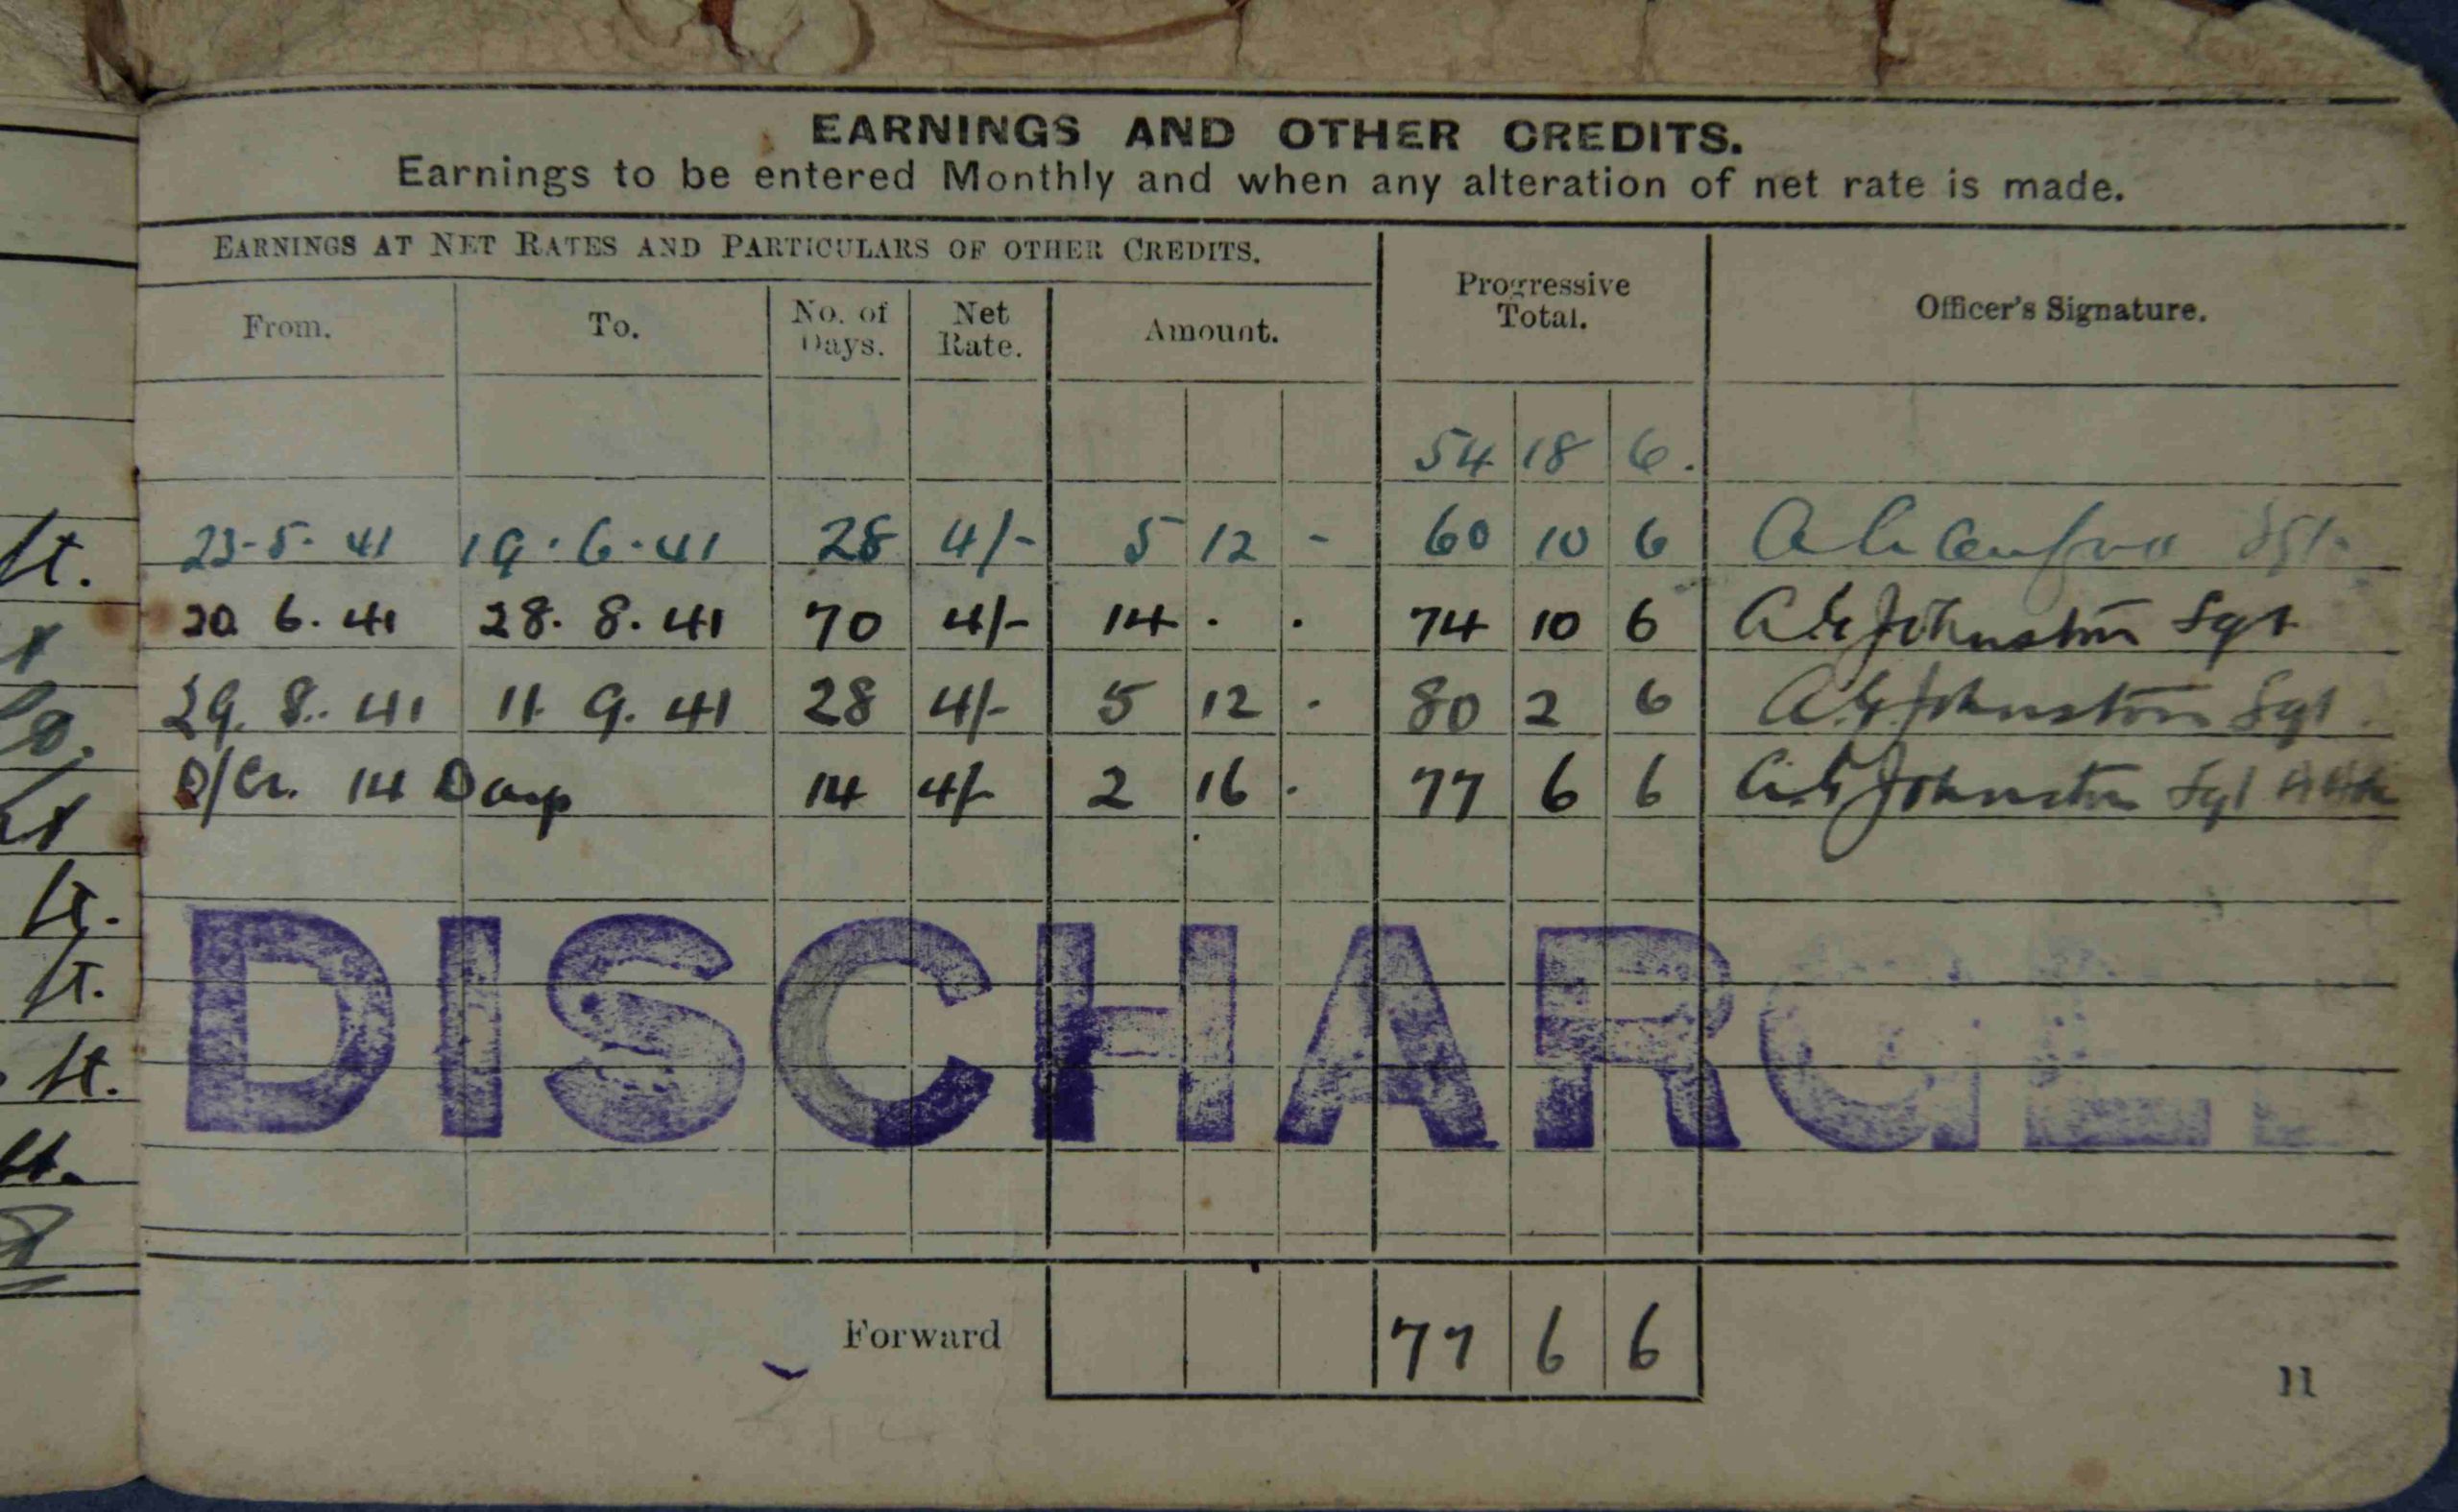 EARNINGS AND OTHER CREDITS.
Earnings to be entered Monthly and when any alteration of net rate is made.
EARNINGS AT NET RATES AND PARTICULARS OF OTHER CREDITS.
From. To. No. of Days. Net Rate. Amount. Progressive Total. Officer's Signature.
54 18 6.
23-5-41 19.6.41 28 4/- 5 12 - 60 10 6 Sgt.
20 6.41 28.8.41 70 4/- 14 . . 74 10 6 A.G. Johnston Sgt
29.8.41 11 9.41 28 4/- 5 12 . 80 2 6 A.G. Johnston Sgt
D/Cr. 14 Days 14 4/- 2 16 . 77 6 6 A.G. Johnston Sgt
DISCHARGE
Forward 77 6 6
11